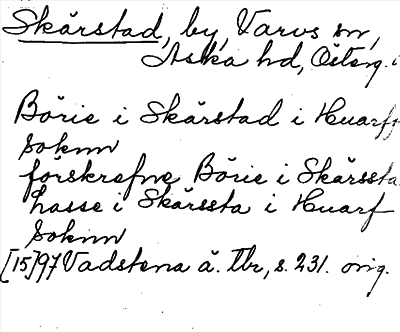 Skärstad, by, Varvs sn,
Aska hd, Österg.
Börie i Skärstad i Huarf
soknn
förskrefne Börie i Skärssta
Lasse i Skärssta i Huarf
soknn
[15]97 Vadstena ä. Tbr, s. 231. orig.